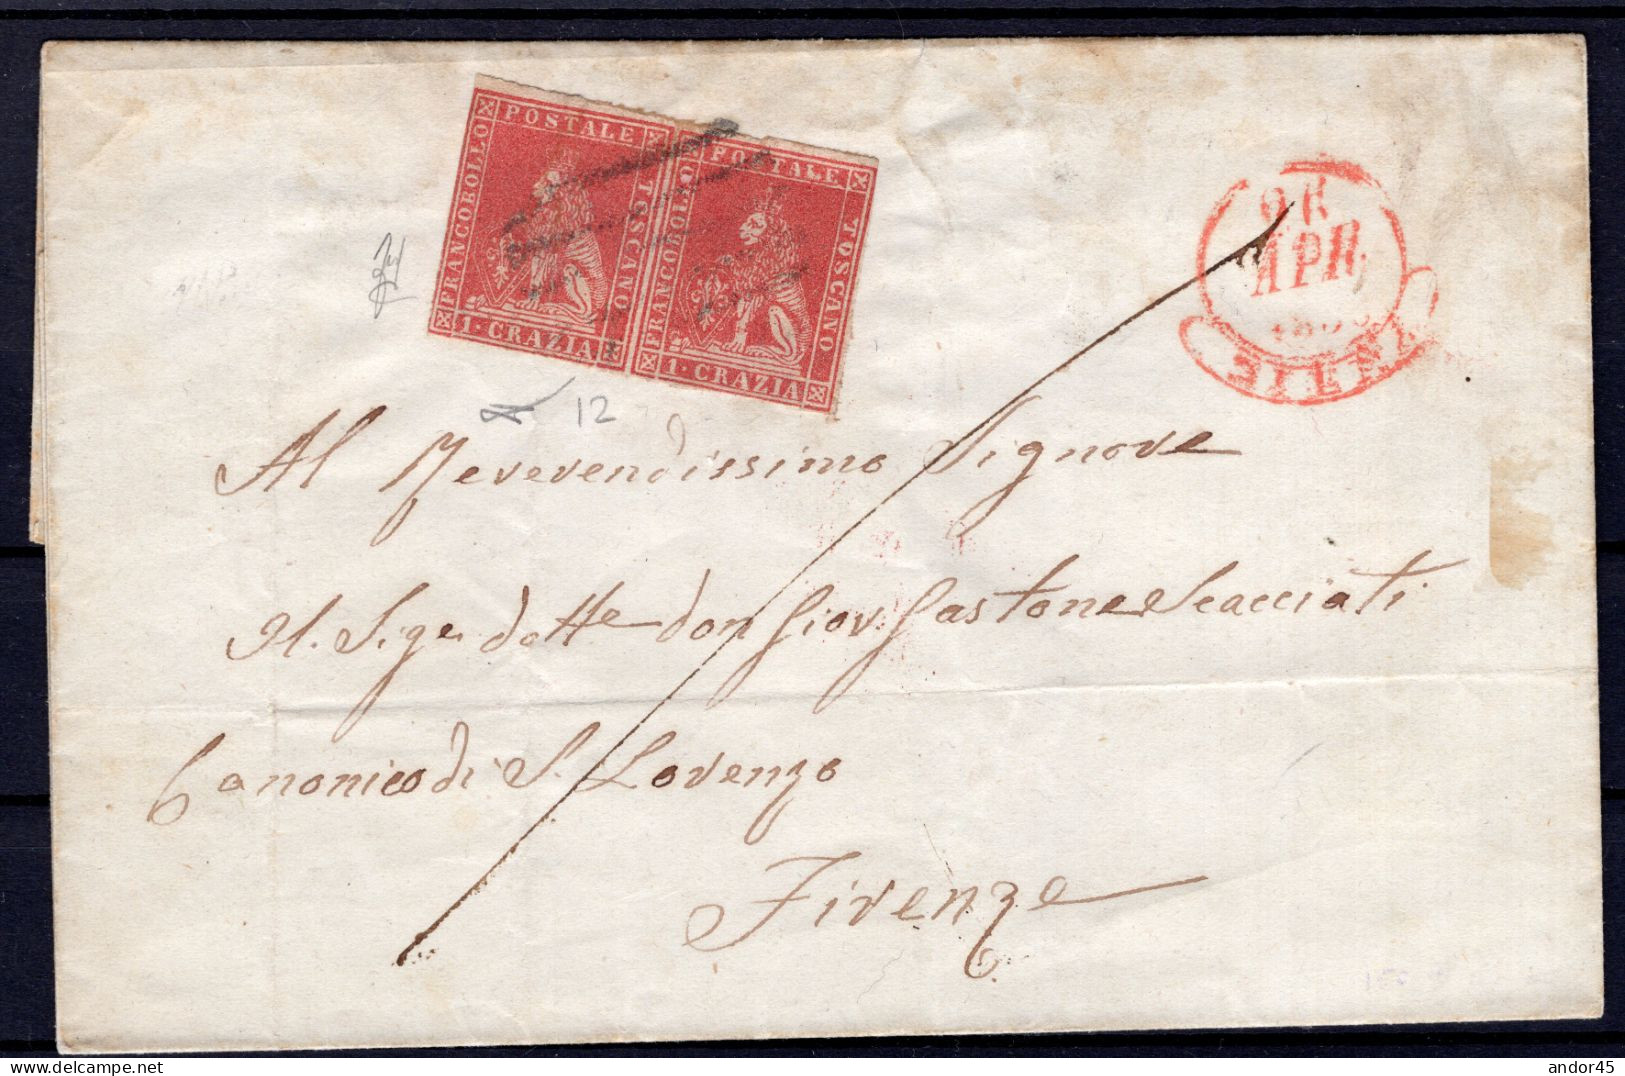 POSTALE
FRANCOBOLLO
TOSCANO
1·CRAZIA
POSTALE
FRANCOBOLLO
TOSCANO
1·CRAZIA
APR
SIENA
12
Al Reverendissimo Signore
Il. Sige. dotte don Giov. Gastone Scacciati
Canonico di S. Lorenzo
Firenze
andor45